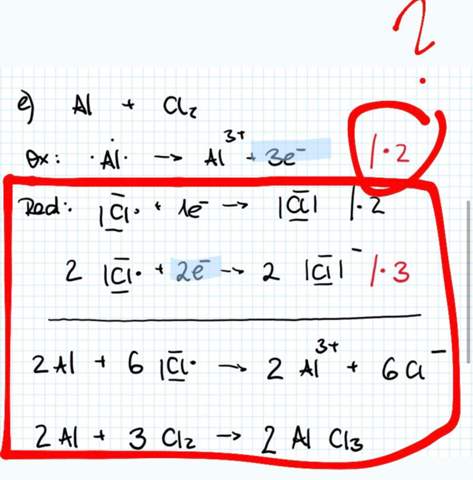 ?
e) Al + Cl₂
Ox: ·Al· → Al³⁺ + 3e⁻ |·2
Red: |Cl· + 1e⁻ → |Cl| |·2
2 |Cl· + 2e⁻ → 2 |Cl|⁻ |·3
2Al + 6 |Cl· → 2 Al³⁺ + 6Cl⁻
2Al + 3 Cl₂ → 2 Al Cl₃